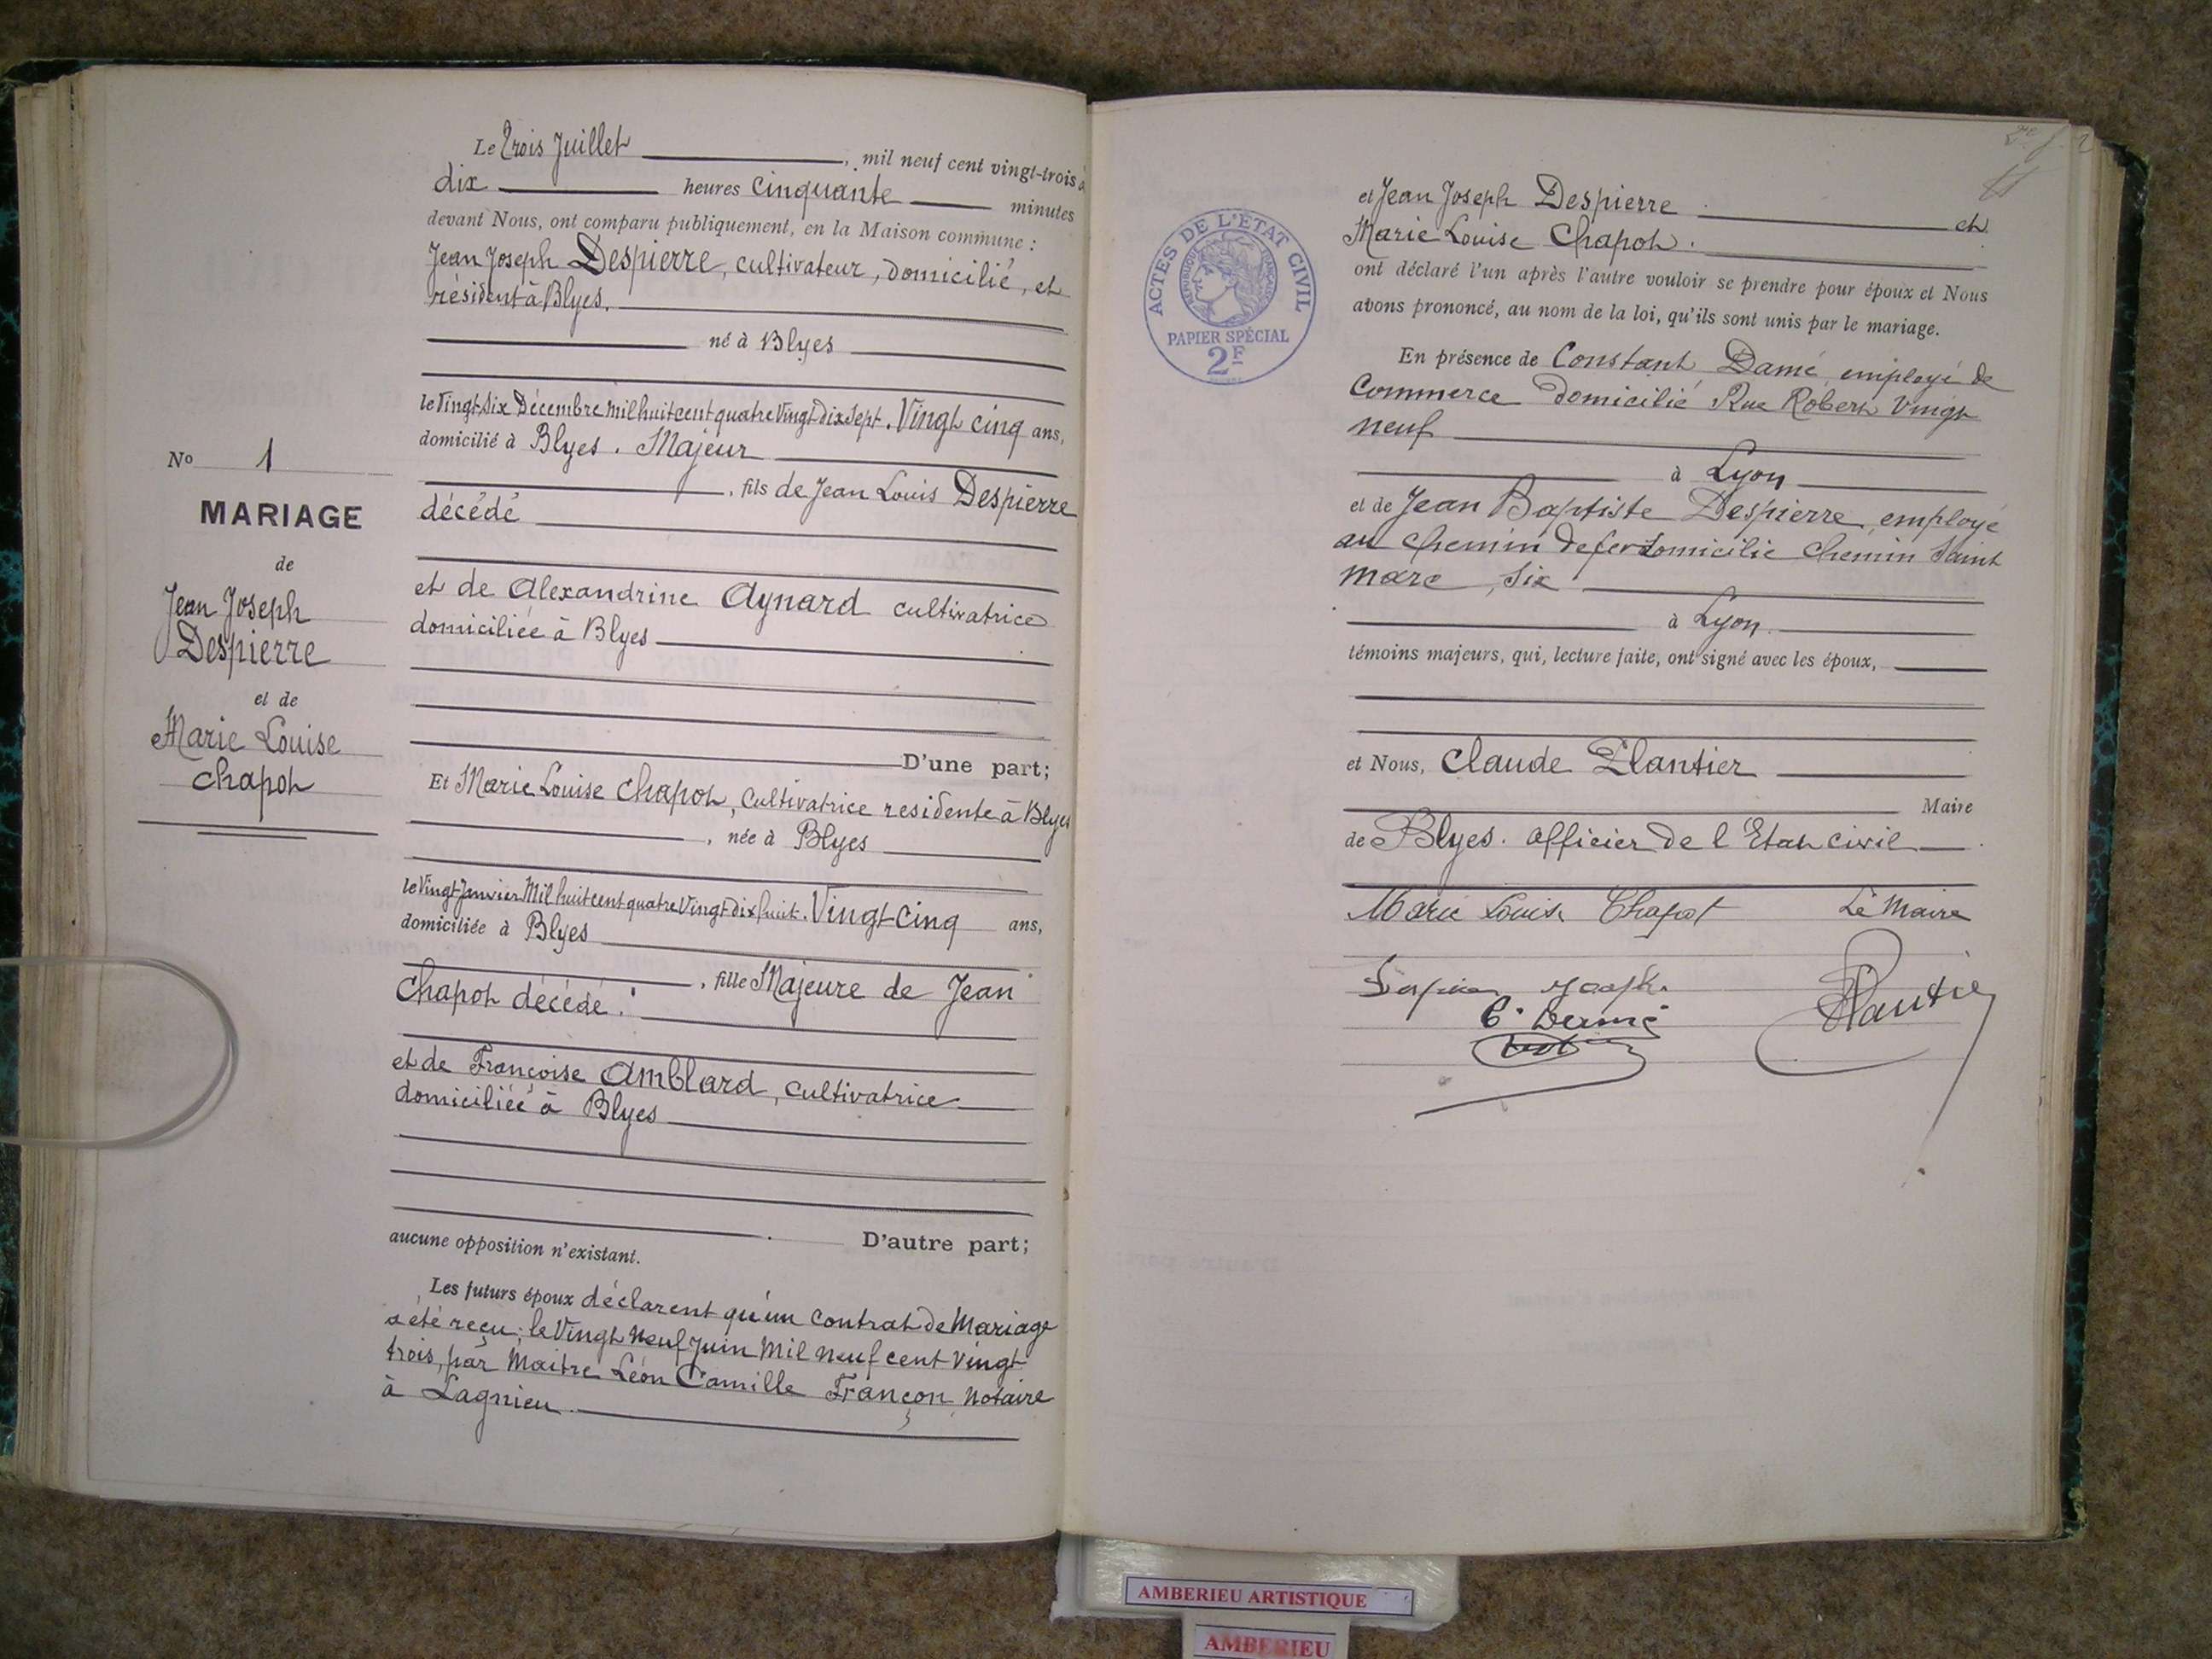 Le Trois Juillet, mil neuf cent vingt-trois à
dix heures cinquante minutes
devant Nous, ont comparu publiquement, en la Maison commune :
Jean Joseph Despierre, cultivateur, domicilié, et
résident à Blyes.
né à Blyes
le Vingt Six Décembre mil huit cent quatre Vingt dix sept. Vingt cinq ans,
domicilié à Blyes. Majeur
, fils de Jean Louis Despierre
décédé
et de Alexandrine Aynard cultivatrice
domiciliée à Blyes
D'une part;
Et Marie Louise Chapot, Cultivatrice residente à Blyes
, née à Blyes
le Vingt Janvier Mil huit cent quatre Vingt dix huit. Vingt-Cinq ans,
domiciliée à Blyes
, fille Majeure de Jean
Chapot décédé.
et de Françoise Amblard, cultivatrice
domiciliée à Blyes
D'autre part;
aucune opposition n'existant.
Les futurs époux déclarent qu'un contrat de Mariage
a été reçu, le Vingt Neuf Juin Mil Neuf cent Vingt
trois, par Maitre Léon Camille Françon, Notaire
à Lagnieu
No 1
MARIAGE
de
Jean Joseph
Despierre
et de
Marie Louise
Chapot
et Jean Joseph Despierre et
Marie Louise Chapot.
ont déclaré l'un après l'autre vouloir se prendre pour époux et Nous
avons prononcé, au nom de la loi, qu'ils sont unis par le mariage.
En présence de Constant Damé, employé de
Commerce domicilié Rue Robert Vingt
neuf
à Lyon
et de Jean Baptiste Despierre employé
au Chemin de fer domicilié Chemin Saint
Marc, Six
à Lyon
témoins majeurs, qui, lecture faite, ont signé avec les époux,
et Nous, Claude Plantier
Maire
de Blyes. Officier de l'Etat civil
Marie Louise Chapot Le Maire
Joseph
Plantier
ACTES DE L'ÉTAT CIVIL
RÉPUBLIQUE FRANÇAISE
PAPIER SPÉCIAL
2F
AMBERIEU ARTISTIQUE
AMBERIEU